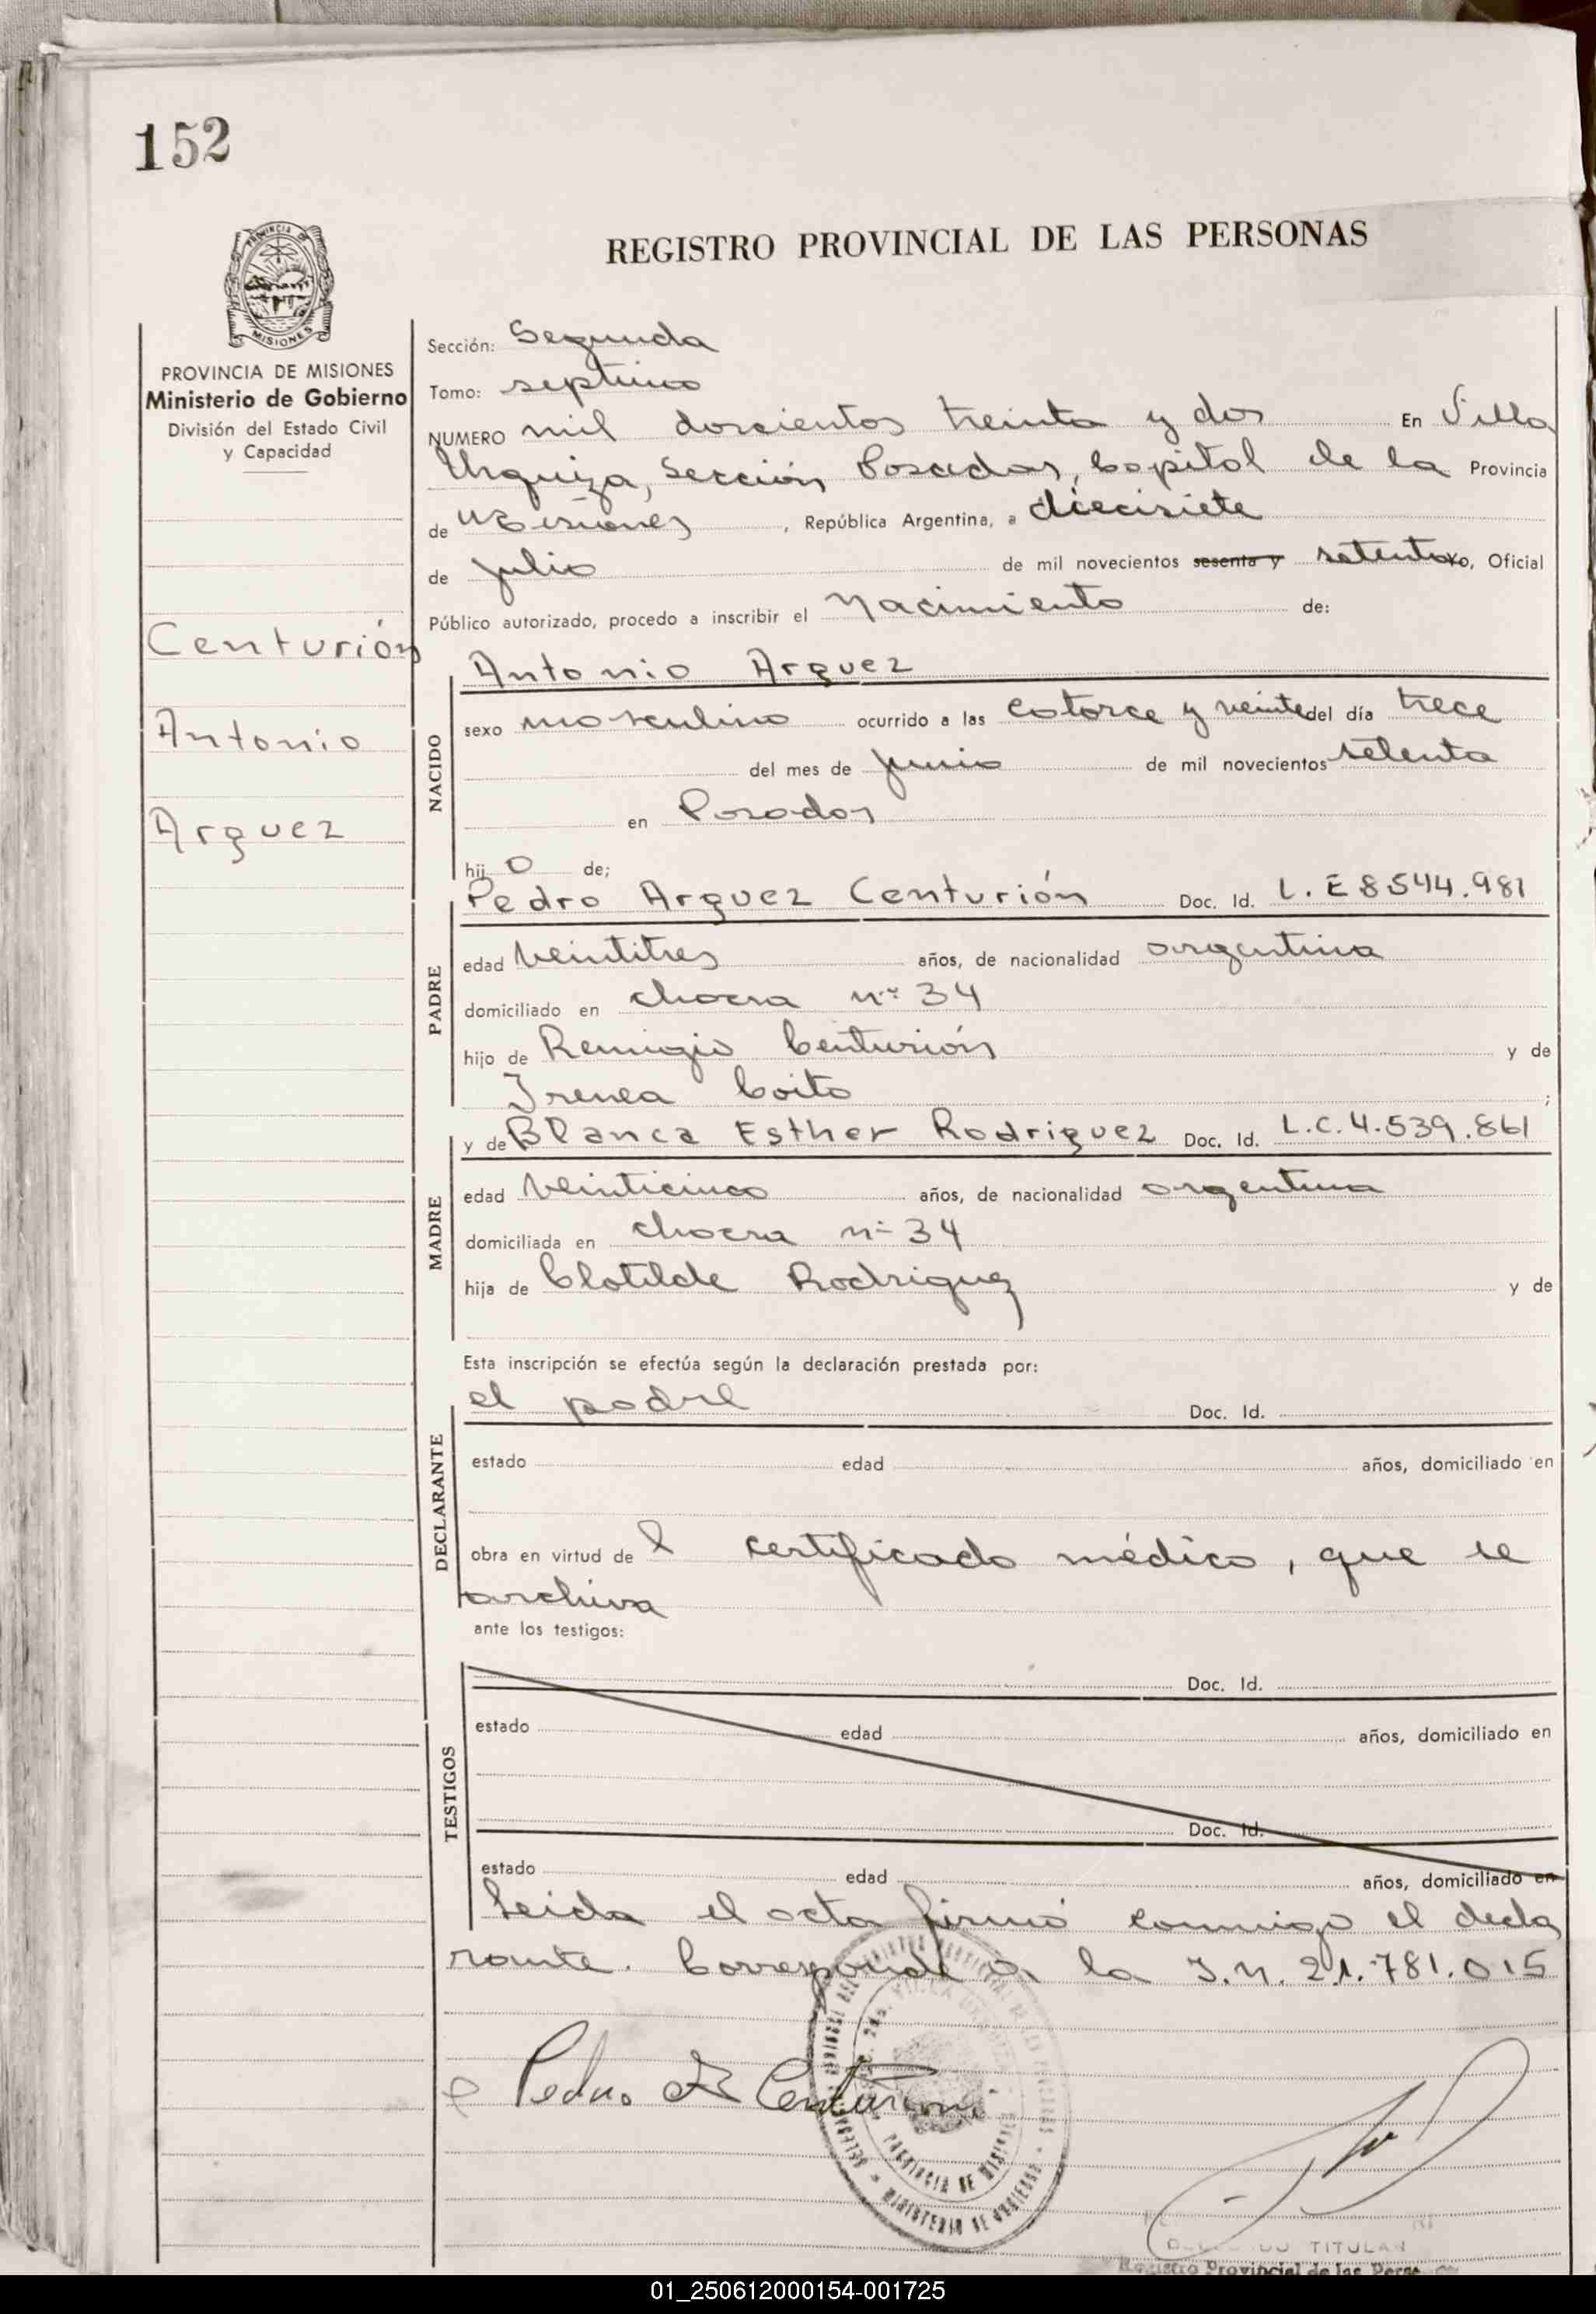 152
PROVINCIA DE
MISIONES
PROVINCIA DE MISIONES
Ministerio de Gobierno
División del Estado Civil
y Capacidad
Centurión
Antonio
Arguez
REGISTRO PROVINCIAL DE LAS PERSONAS
Sección: Segunda
Tomo: septimo
NUMERO mil doscientos treinta y dos En Villa
Urquiza, Sección Posadas, Capital de la Provincia
de Misiones, República Argentina, a diecisiete
de julio de mil novecientos sesenta y setenta yo, Oficial
Público autorizado, procedo a inscribir el Nacimiento de:
Antonio Arguez
NACIDO
sexo masculino ocurrido a las catorce y veinte del día trece
del mes de junio de mil novecientos setenta
en Posadas
hij o de;
Pedro Arguez Centurión Doc. Id. L. E 8544.981
PADRE
edad veintitres años, de nacionalidad argentina
domiciliado en chacra nº 34
hijo de Remigio Centurión y de
Irenea Coito ;
y de Blanca Esther Rodriguez Doc. Id. L.C. 4.539.861
MADRE
edad veinticinco años, de nacionalidad argentina
domiciliada en chacra nº 34
hija de Clotilde Rodriguez y de
Esta inscripción se efectúa según la declaración prestada por:
el padre Doc. Id.
DECLARANTE
estado edad años, domiciliado en
obra en virtud de l certificado médico, que se
archiva
ante los testigos:
TESTIGOS
Doc. Id.
estado edad años, domiciliado en
Doc. Id.
estado edad años, domiciliado en
Leida el acta firmó conmigo el decla
rante. Corresponde a la I.N. 21.781.015
Pedro A Centurion
PROVINCIA DE MISIONES
MINISTERIO DE GOBIERNO
TITULAR
Registro Provincial de las Perso
01_250612000154-001725